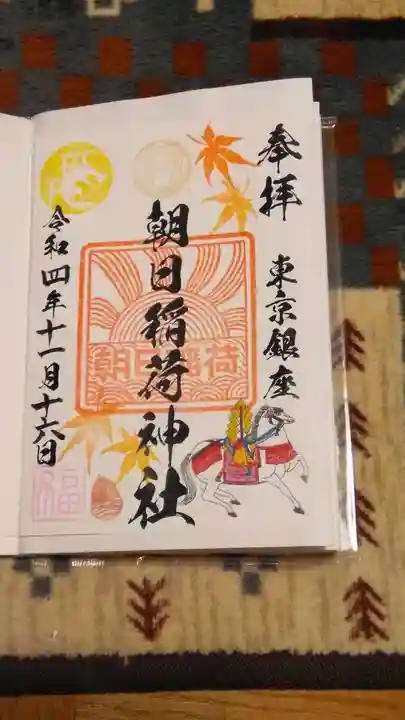 奉拝
東京銀座
朝日稲荷神社
朝日稲荷
令和四年十一月十六日
福